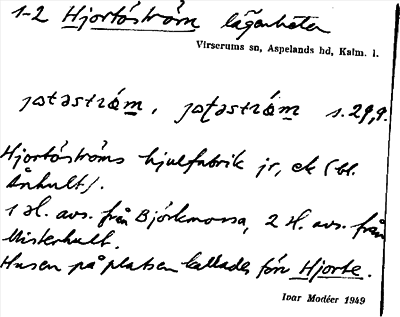 1-2 Hjortöström lägenheter
Virserums sn, Aspelands hd, Kalm. l.
jotəström, joţəström s. 29,9.
Hjortöströms hjulfabrik jr, ek (bl.
Ånhult).
1 H. avs. från Björkmossa, 2 H. avs. från
Misterhult.
Husen på platsen kallades förr Hjorte.
Ivar Modéer 1949